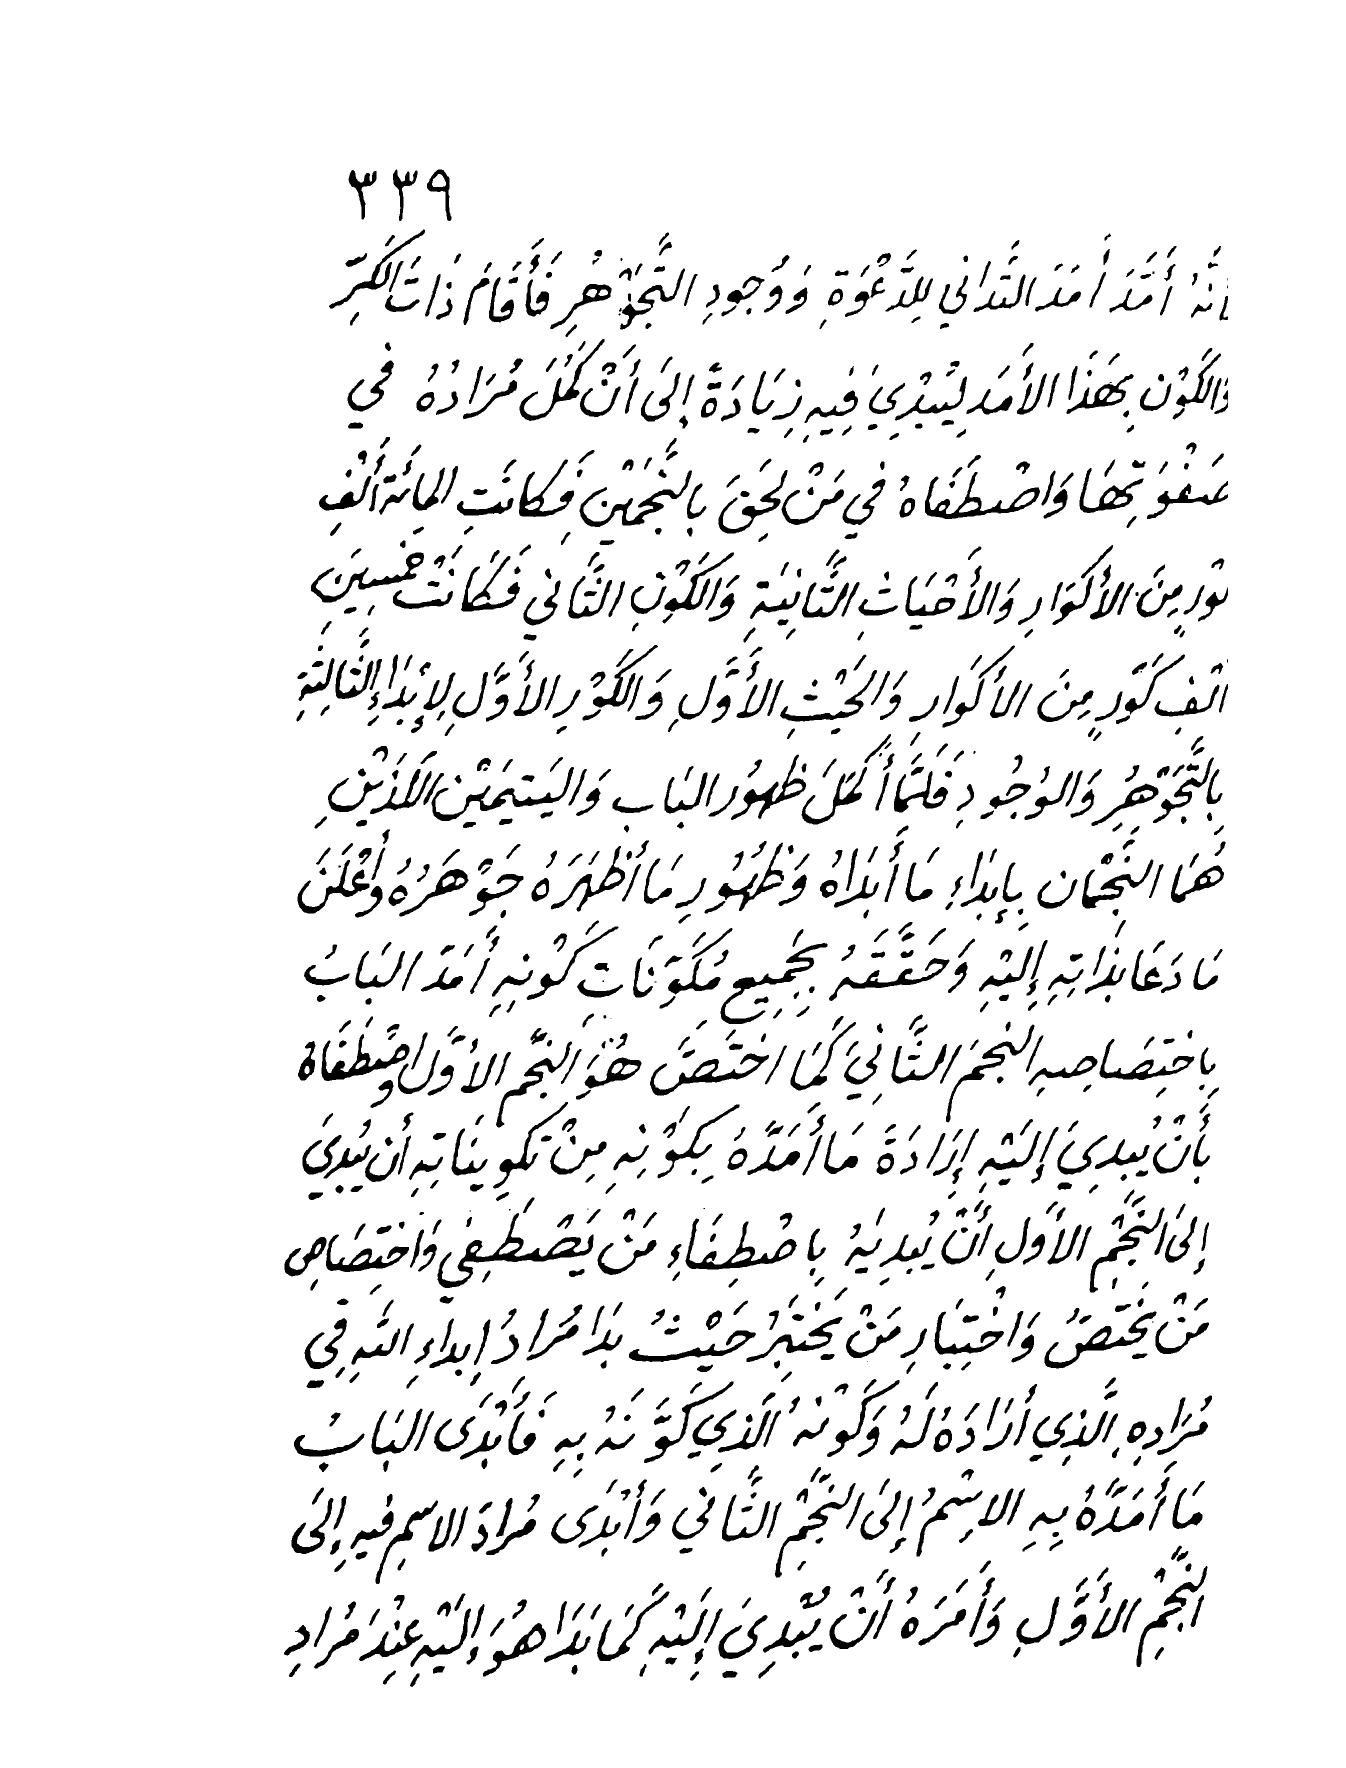 ٣٣٩
أَنَّهُ أَمَّدَ أَمَدَ التَّدَانِي لِلدَّعْوَةِ وَوُجودِ التَّجَوْهُرِ فَأَقَامَ ذَاتَ الكَرِّ
وَالكَوْنِ بِهَذَا الأَمَدِ لِيُبْدِيَ فِيهِ زِيَادَةً إِلَى أَنْ كَمُلَ مُرَادُهُ في
صَفْوَتِهَا وَاصْطَفَاهُ في مَنْ لَحِقَ بِالنَّجْمَيْنِ فَكانَتِ المِائَةُ أَلْفِ
كَوْرٍ مِنَ الأَكوَارِ وَالأَحْيَاثِ الثَّانِيَةِ وَالكَوْنِ الثَّاني فَكَانَتْ خَمْسِينَ
أَلْفِ كَوْرٍ مِنَ الأَكوَارِ وَالحَيْثِ الأَوَّلِ وَالكَوْرِ الأَوَّلِ لِإِبْدَاءِ الثَّالِثَةِ
بِالتَّجَوْهُرِ وَالوُجُودِ فَلَمَّا أَكمَلَ ظهُورَ البَاب وَاليَتيمَيْنِ اللَّذَيْنِ
هُمَا النَّجْمَان بِإِبدَاءِ مَا أَبدَاهُ وَظُهُورِ مَا أَظهَرَهُ جَوْهَرُهُ وأَعْلَنَ
مَا دَعَا بِذَاتِهِ إِليْهِ وَحَقَّقَهُ بِجَمِيعِ مُكَوَّنَاتِ كَوْنِهِ أَمَدَّ البَابُ
بِاختِصَاصِهِ النجمَ الثَّانِيَ كَمَا اختَصَّ هُوَ النَّجْم الأوَّلَ وَاصْطَفَاهُ
بأَنْ يُبدِيَ إِلَيْهِ إِرَادَةَ مَا أَمَدَّهُ بِكوْنِهِ مِنْ تَكوِينَاتِهِ أَن يُبدِيَ
إِلىَ النَّجْمِ الأوَّلِ أَنْ يُبدِيَهُ بِاصْطِفَاءِ مَنْ يَصْطَفِي وَاختِصَاصِ
مَنْ يَخْتَصُّ وَاخْتِبَارِ مَنْ يَخْتَبِرُ حَيْثُ بدَا مُرَادُ إِبداءِ اللَّهِ فِي
مُرَادِهِ الَّذِي أَرَادَهُ لَهُ وَكَوْنُهُ الَّذِي كَوَّنَهُ بِهِ فَأَبْدَى البَابُ
مَا أَمَدَّهُ بِهِ الاِسْمُ إِلىَ النَّجْمِ الثَّانِي وَأَبْدَى مُرادَ الاسمِ فيهِ إِلىَ
النَّجْمِ الأَوَّلِ وَأَمَرَهُ أَنْ يُبْدِيَ إِلَيْهِ كَمَا بَدَا هُوَ إِلَيْهِ عِنْدَ مُرَادِ